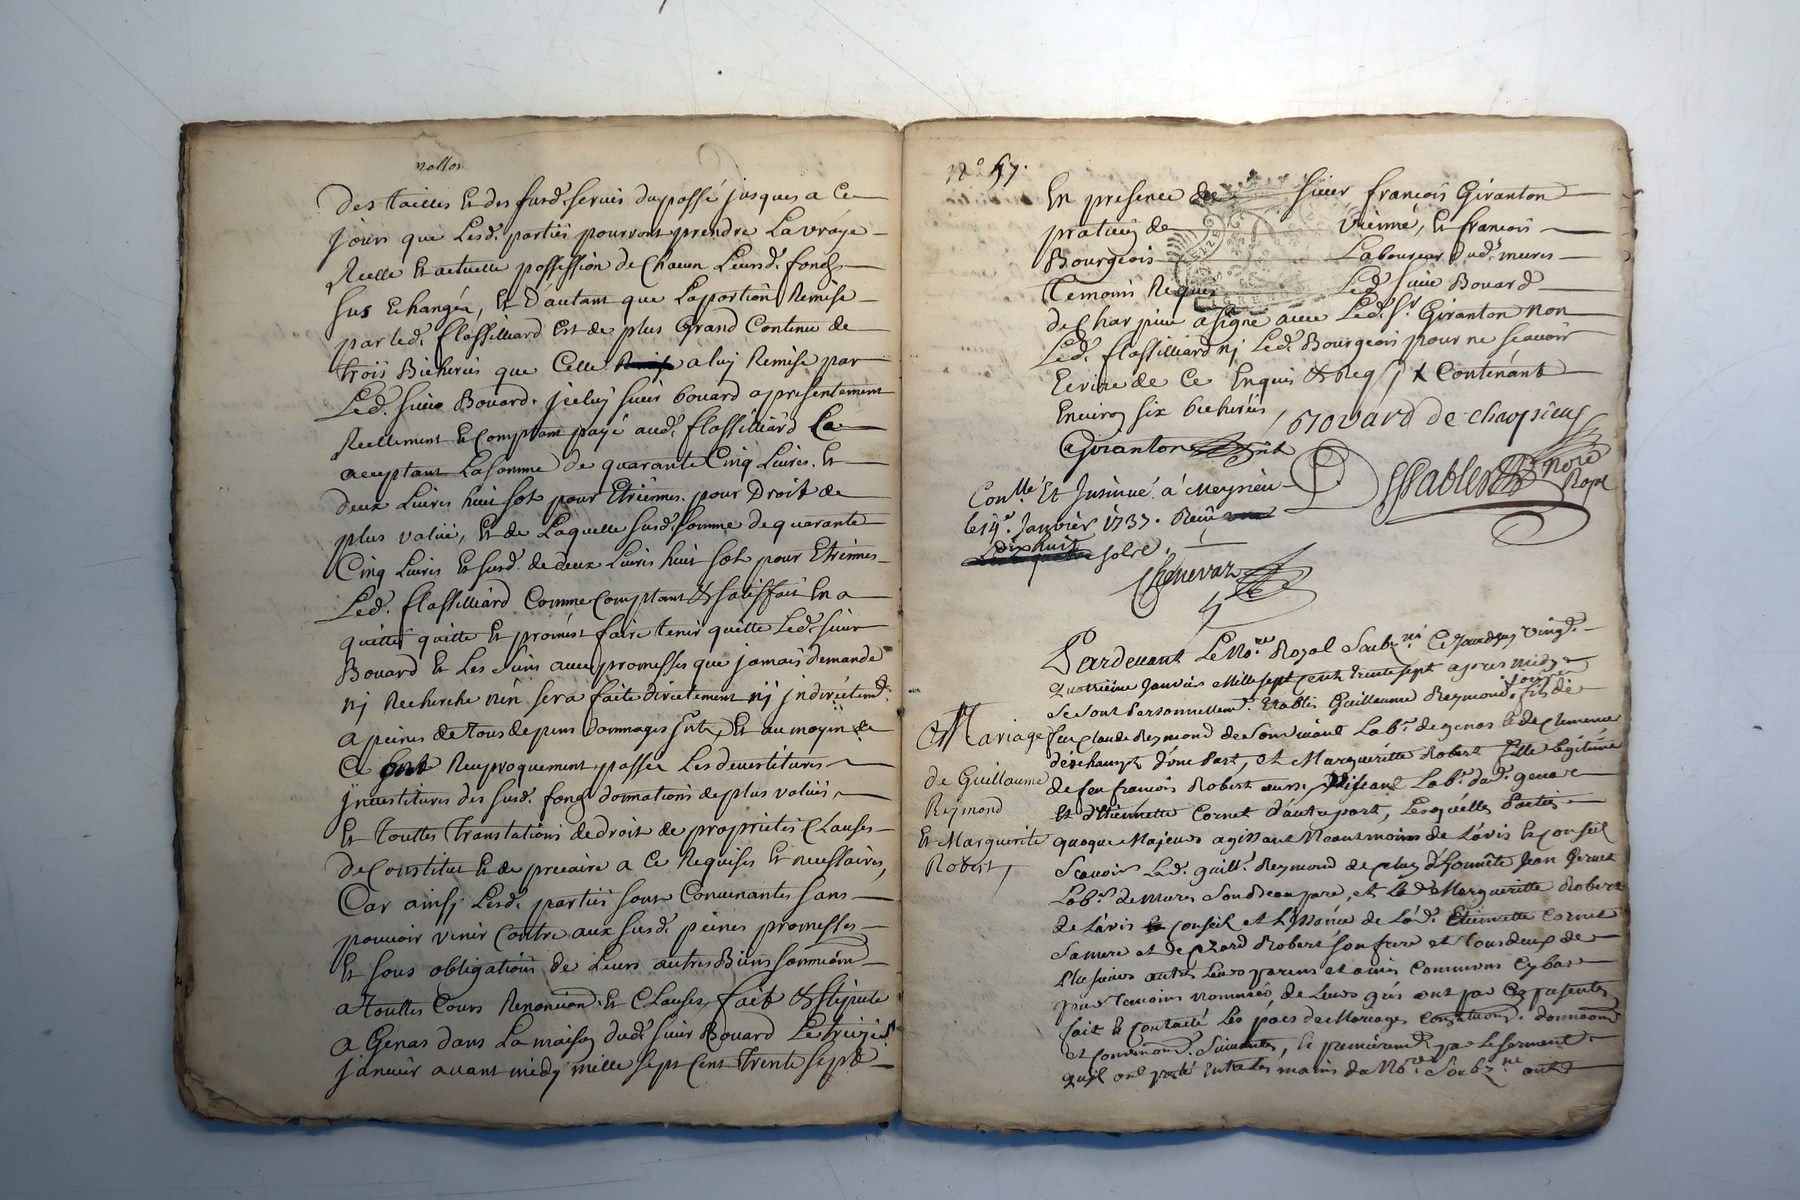 des tailles et des susd. servis du passé jusques a ce
jour que lesd. parties pourront prendre la vraye
Reelle et actuelle possession de Chacun leursd. fonds
sus Echangés, et d'autant que la portion Remise
par led. flassilliard Est de plus Grand Contenu de
trois Bicherées que Celle a luy Remise par
Led. sieur Bouard. jceluy sieur bouard a presentement
Reellement et comptant payé aud. flassilliard Ce
acceptant La somme de quarante Cinq Livres. Et
deux Livres huit sols pour Etrennes. pour Droit de
plus valüe, et de Laquelle susd. somme de quarante
Cinq Livres et susd. de deux Livres huit sols pour Etrennes
Led. flassilliard Comme Comptant et satisfait En a
quitté quitte et promest faire tenir quitte Led. sieur
Bouard et Les siens avec promesses que jamais demande
nj Recherche n'en sera faite directement nj jndirectemt.
a peines de tous depens dommages jnts, Et au moyen de
Ce ont Reciproquement passée Les devestitures
jnvestitures des susd. fonds donnations de plus values
Et touttes translations de droit de proprietés Clauses
de Constitut et de precaire a Ce Requises Et necessaires,
Car ainsj Lesd. parties sont Convenantes sans
pouvoir venir Contre aux susd. peines promesses
Et sous obligations de Leurs autres Biens
a touttes Cours Renonciaon. et Clauses, fait et stipulé
a Genas dans La maison dud. sieur Bouard Le
janvier avant midy mille sept Cent trente sept
No 57.
En presence de sieur françois Giranton
praticien de vienne, et françois
Bourgeois Laboureur dud. meures
temoins Requis Led. sieur Bouard
de Charpieu a signé avec Led. sr. Giranton non
Led. flassilliard nj Led. Bourgeois pour ne scavoir
Ecrire de Ce Enquis et Req. Contenant
Environ six bicherées
Bouard de Charpieu
Giranton
Conllé Et Insinué à Meyzieu
le 14e. Janvier 1737. Reçû
dix huit sols.
Chenevaz
Pardevant Le Nore. Royal soubz.né Ce Jourdhuy vingt
quatrieme Janvier Mille sept cent trente sept apres midy
se sont Personnellemt. Etablis Guillaume Reymond fils de
feu Claude Reymond Labr. de genas et de Clemence
deschampt d'une Part, et Margueritte Robert fille Legitime
de feu francois Robert Labr. dud. genas
Et d'Etiennette Cornet d'autre part, Lesquelles Parties
quoyque Majeurs agissant Neantmoins de L'avis et Conseil
Scavoir Led. guille. Reymond de plus d'honnête Jean
Labr. de mures son Beau pere, et Lad. Marguerite Robert
de L'avis Conseil et de Lad. Etiennette Cornet
sa mere et de Robert son frere et tous deux de
Plusieurs autres Leurs parens et amis Communs Cy bas
pour temoins nommés, de Leurs grés ont par Ces presentes
fait et Contracté Les pacs de Mariages Constitutions. donnaons
et Convenaons. Suivantes, Et premieremt. par Le serment
quil ont preté Entre Les mains du Nore. Soubz.né ont
Mariage
de Guillaume
Reymond
Et Marguerite
Robert